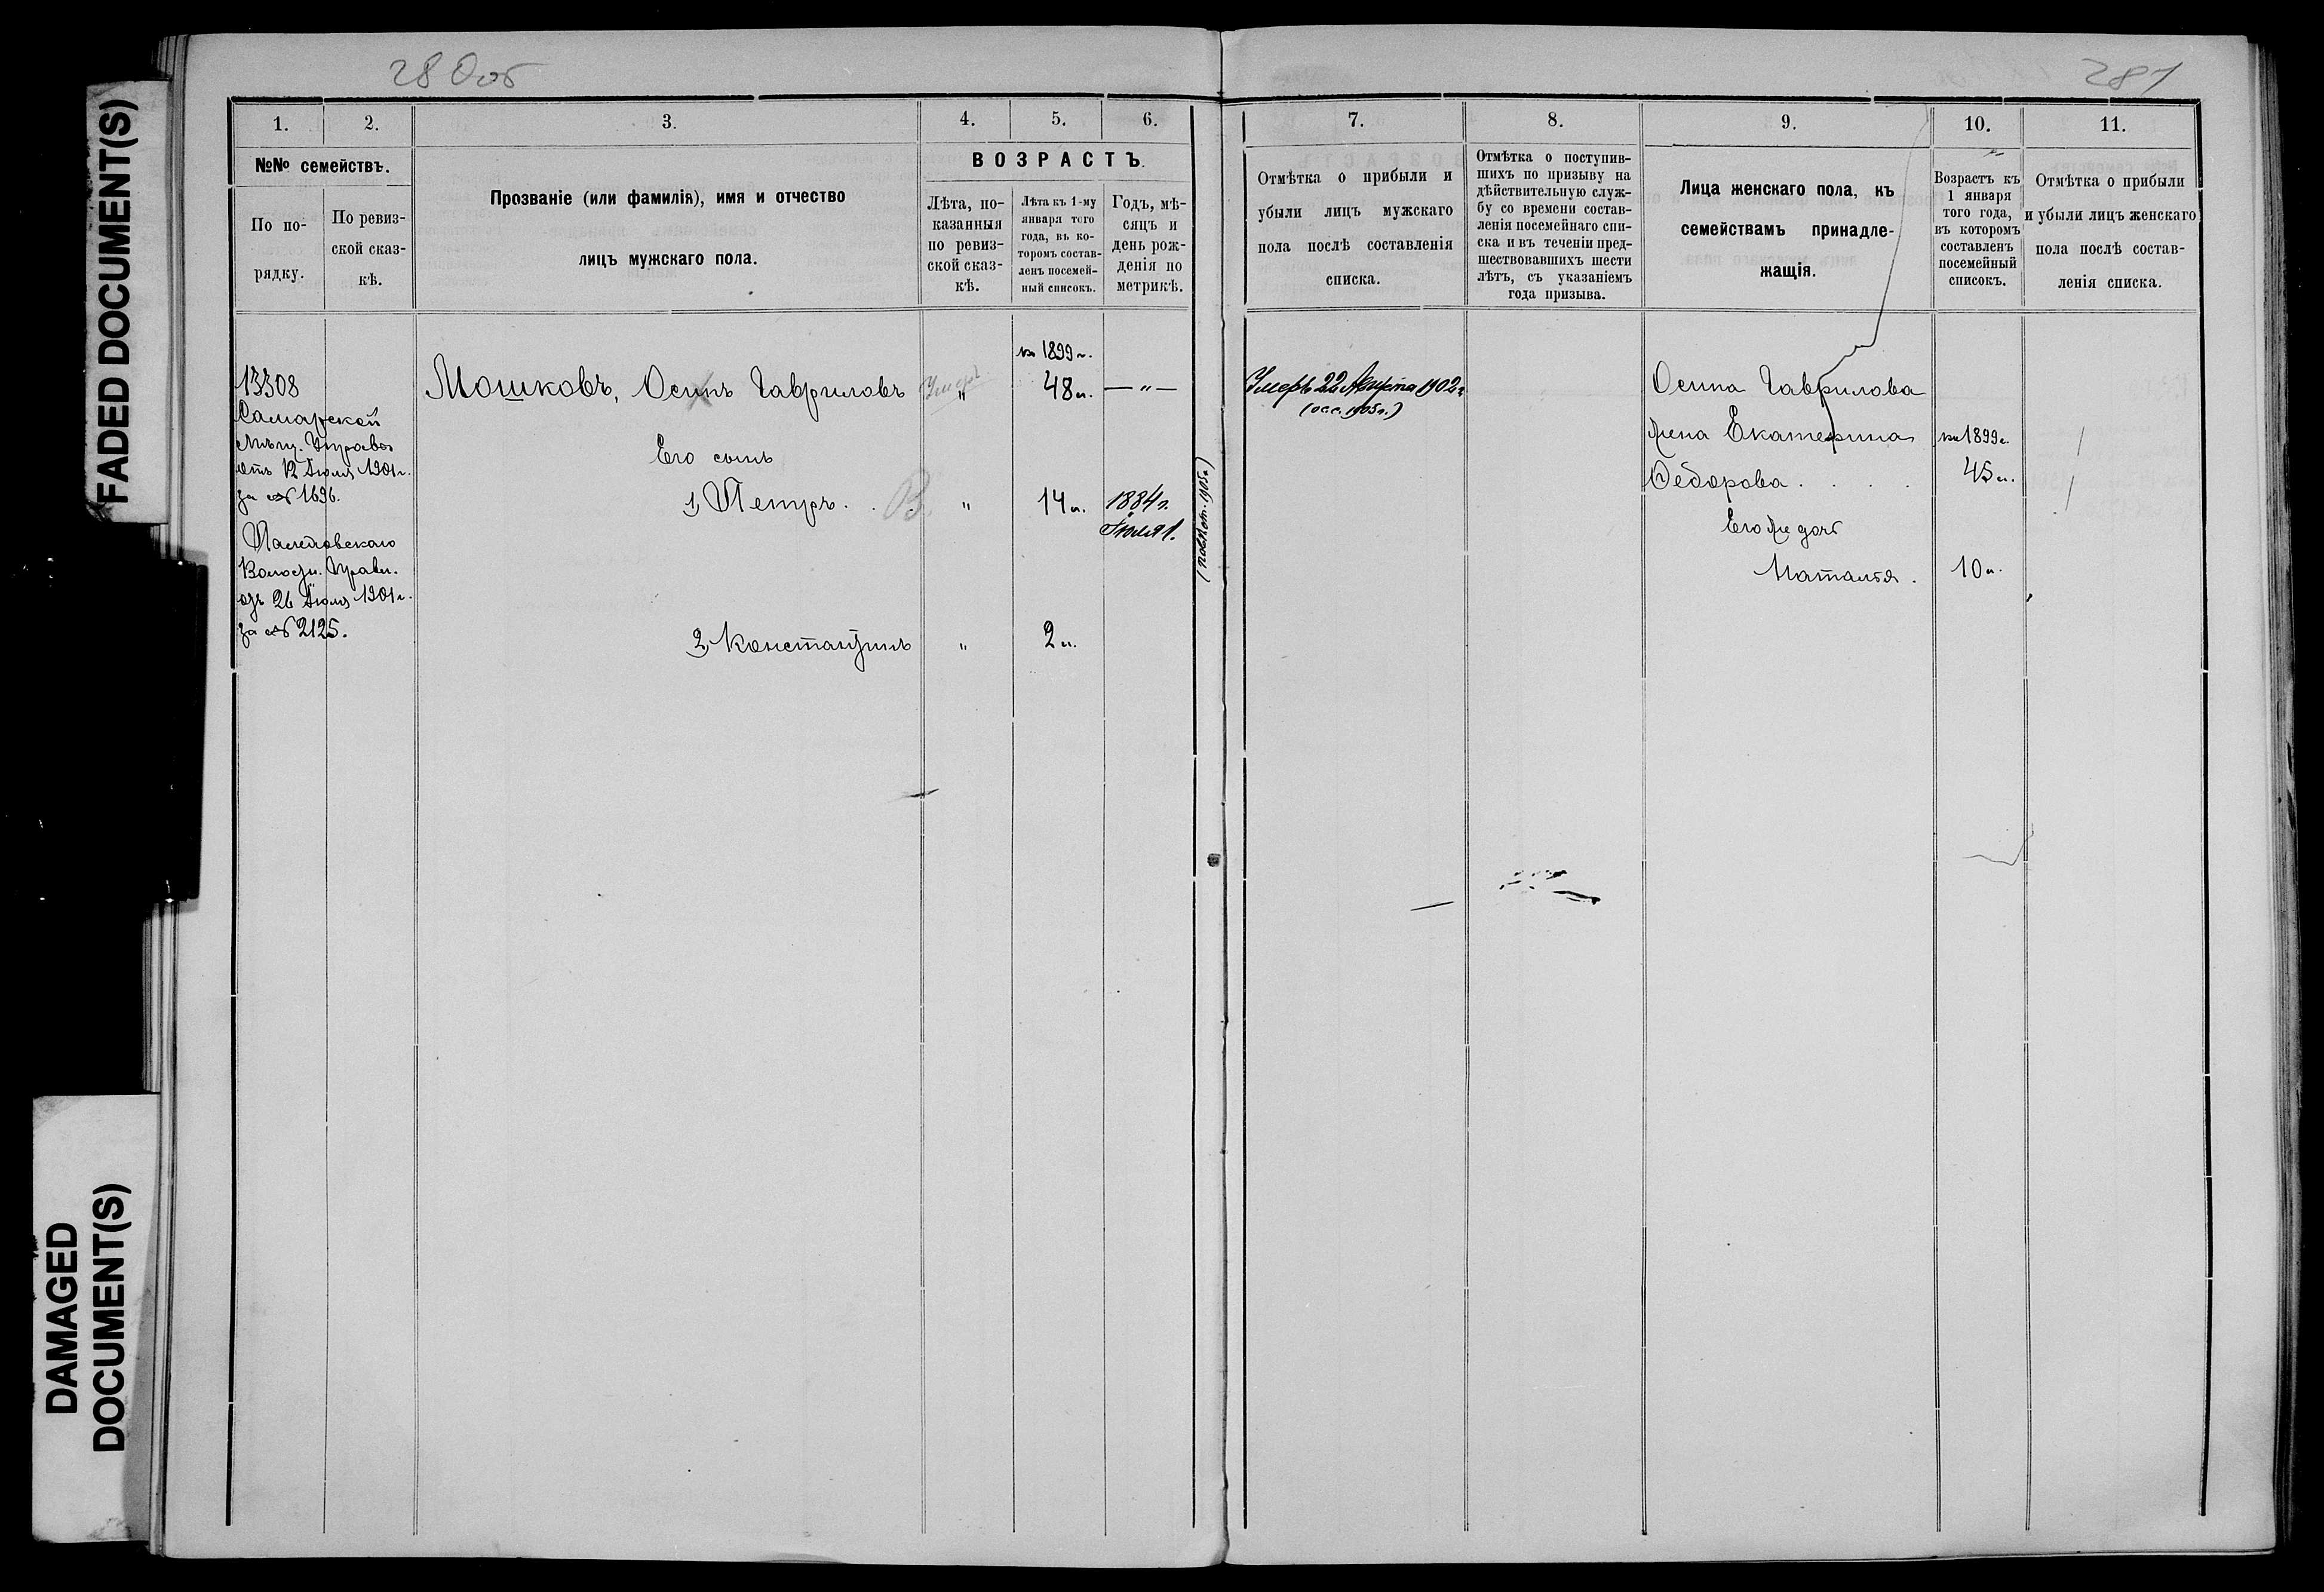 FADED DOCUMENT(S)
DAMAGED
DOCUMENT(S)
280об
281
1. 2. 3. 4. 5. 6.
№№ семействъ.
По по-
рядку.
По ревиз-
ской сказ-
кѣ.
Прозваніе (или фамилія), имя и отчество
лицъ мужскаго пола.
ВОЗРАСТЪ.
Лѣта, по-
казанныя
по ревиз-
ской сказ-
кѣ.
Лѣта къ 1-му
января того
года, въ ко-
торомъ состав-
ленъ посемей-
ный списокъ.
Годъ, мѣ-
сяцъ и
день рож-
денія по
метрикѣ.
13308
Самарской
Мѣщ. Управы
отъ 12 Іюля 1901 г.
за № 1696.
Волостн. Правл.
отъ 26 Іюля 1901 г.
за № 2125.
на 1899 г.
Мошковъ, Осипъ Гавриловъ Умеръ " 48 л. — " —
Его сынъ
1, Петръ . . В " 14 л. 1884 г.
Іюля 1.
2, Константинъ " 2 л.
7. 8. 9. 10. 11.
Отмѣтка о прибыли и
убыли лицъ мужскаго
пола послѣ составленія
списка.
Отмѣтка о поступив-
шихъ по призыву на
дѣйствительную служ-
бу со времени состав-
ленія посемейнаго спи-
ска и въ теченіи пред-
шествовавшихъ шести
лѣтъ, съ указаніемъ
года призыва.
Лица женскаго пола, къ
семействамъ принадле-
жащія.
Возрастъ къ
1 января
того года,
въ которомъ
составленъ
посемейный
списокъ.
Отмѣтка о прибыли
и убыли лицъ женскаго
пола послѣ состав-
ленія списка.
Умеръ 22 Августа 1902 г.
1905 г.)
Осипа Гаврилова
жена Екатерина на 1899 г.
Ѳедорова . . . . 45 л.
Его же дочь
Наталья . 10 л.